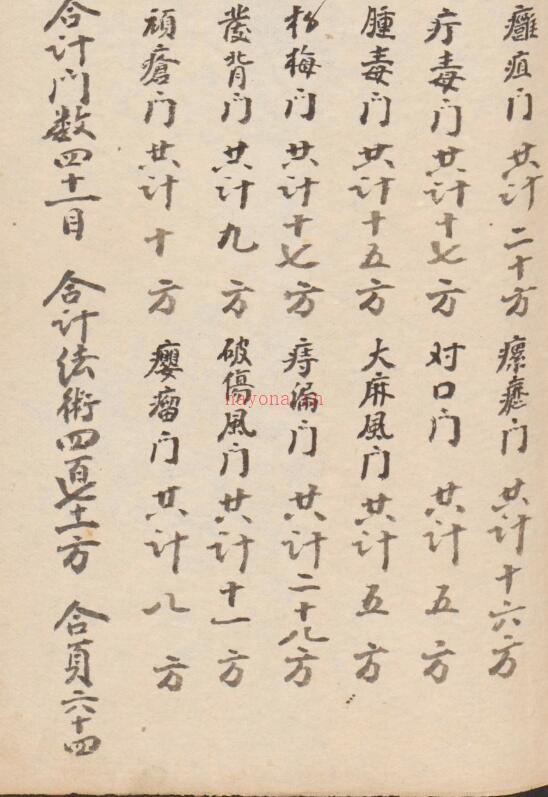 癰疽门 共计二十方 瘰癧门 共计十六方
疔毒门 共计十七方 对口门 共计五方
腫毒门 共计十五方 大麻風门 共计五方
杨梅门 共计十七方 痔漏门 共计二十八方
發背门 共计九方 破傷風门 共计十一方
頑瘡门 共计十方 癭瘤门 共计八方
合计门数四十一目 合计法術四百七十二方 合頁六十四
nayona.cn